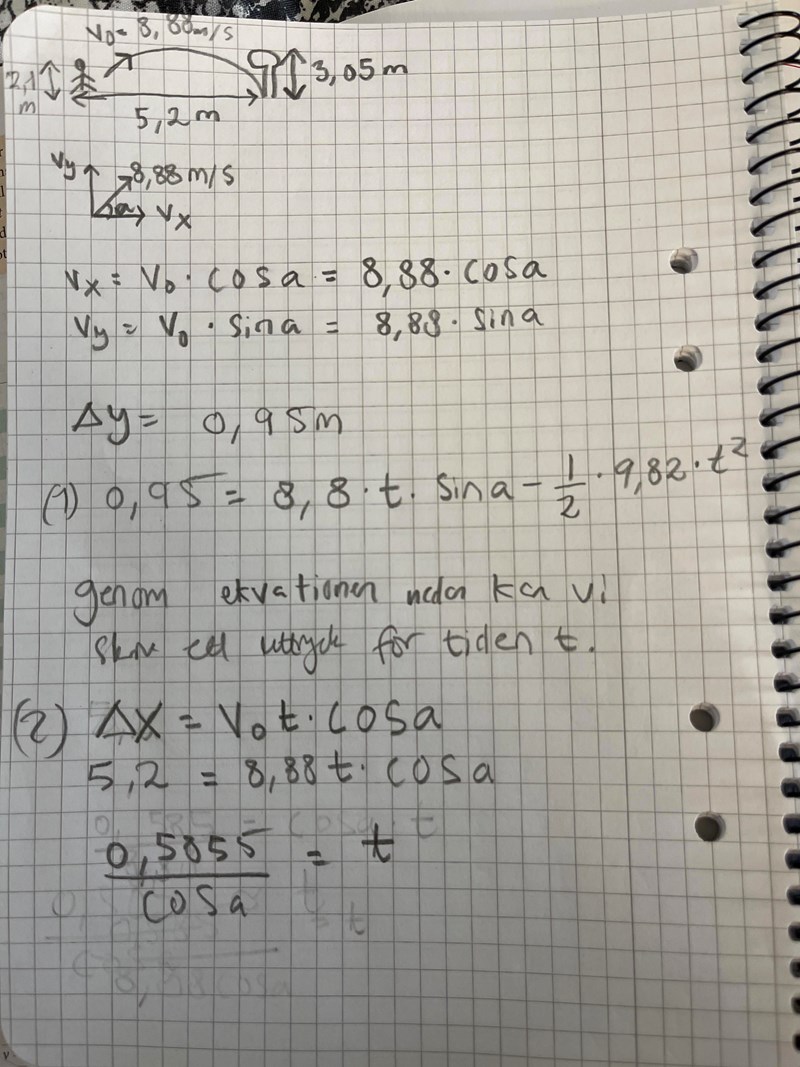 V₀= 8,88m/s
2,1 m
3,05m
5,2m
Vy
8,88 m/s
a
Vx
Vx = V₀ · cosa = 8,88 · cosa
Vy = V₀ · sina = 8,88 · sina
Δy = 0,95m
(1) 0,95 = 8,8 · t · sina - 1/2 · 9,82 · t²
genom ekvationen nedan kan vi
skriva ett uttryck för tiden t.
(2) Δx = V₀ t · cosa
5,2 = 8,88 t · cosa
0,5855 / cosa = t